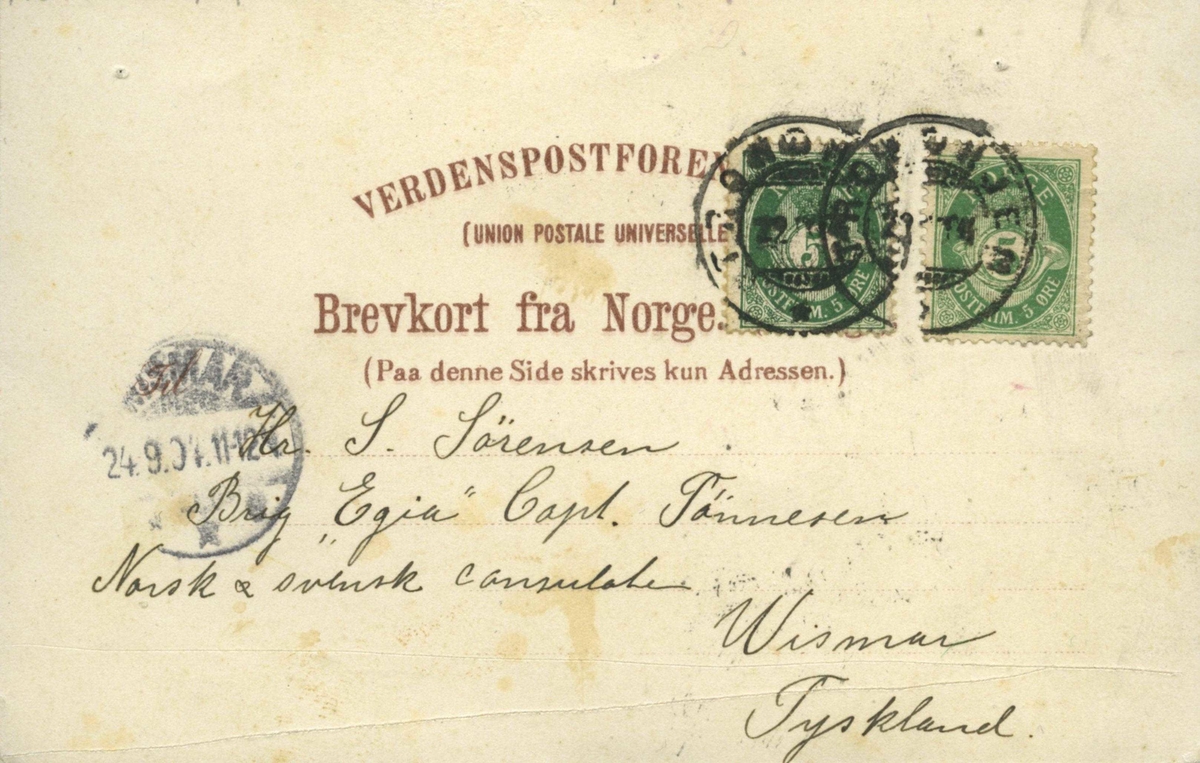 VERDENSPOSTFOREN
(UNION POSTALE UNIVERSELLE
Brevkort fra Norge.
(Paa denne Side skrives kun Adressen.)
NORGE
5
POSTFRIM. 5 ØRE
NORGE
5
POSTFRIM. 5 ØRE
TRONDHJEM
Til
WISMAR
24.9.04.11-12
Hr. S. Sörensen
Brig „Egia" Capt. Tönnesen
Norsk & svensk consulate
Wismar
Tyskland.